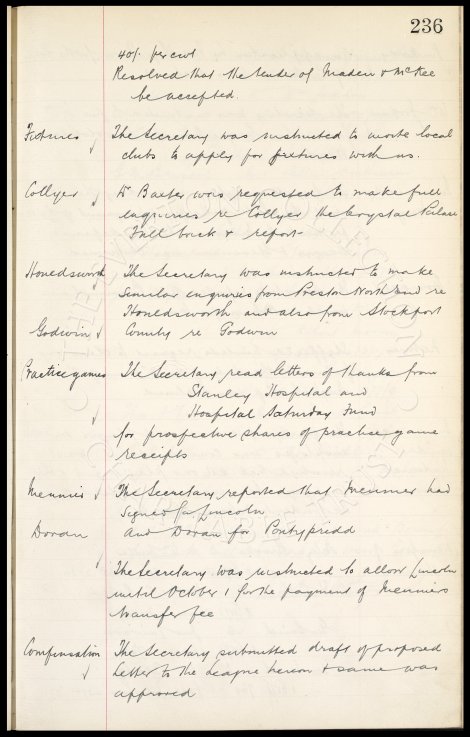 236
40/. per cwt
Resolved that the tender of Maden & McKee
be accepted.
Fixtures The Secretary was instructed to invite local
clubs to apply for fixtures with us.
Collyer Dr Baxter was requested to make full
enquiries re Collyer the Crystal Palace
Full back & report
Houedsworth The Secretary was instructed to make
similar enquiries from Preston North End re
Houedsworth and also from Stockport
Godwin County re Godwin
Practice games The Secretary read letters of thanks from
Stanley Hospital and
Hospital Saturday Fund
for prospective shares of practice game
receipts
The Secretary reported that had
signed for Lincoln
Doran and Doran for Pontypridd
The Secretary was instructed to allow Lincoln
until October 1 for the payment of
transfer fee
Compensation The Secretary submitted draft of proposed
letter to the League hereon & same was
approved